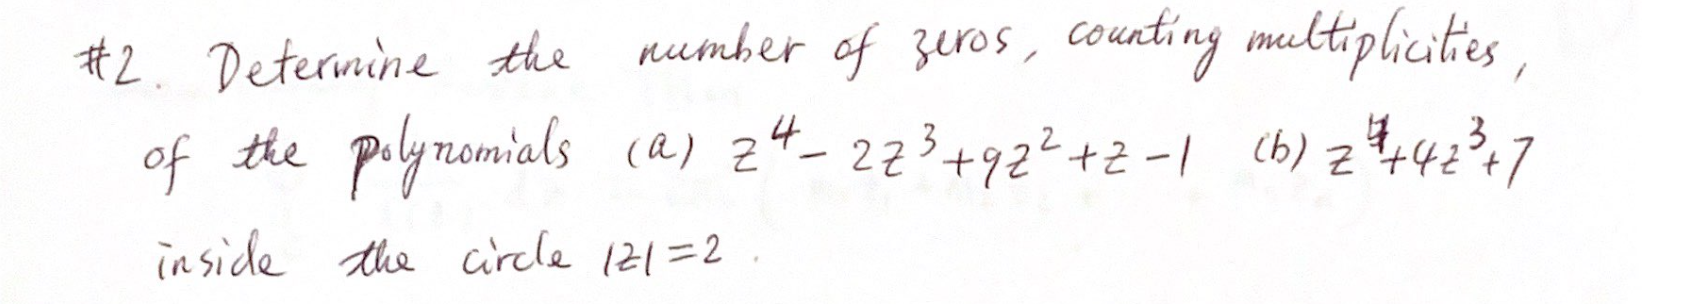 #2. Determine the number of zeros, counting multiplicities,
of the polynomials (a) z⁴ - 2z³ + 9z² + z - 1 (b) z⁴ + 4z³ + 7
inside the circle |z| = 2.